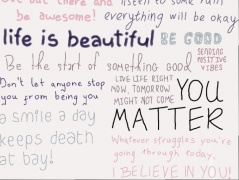 out there and listen to some rain
be awesome! everything will be okay
life is beautiful BE GOOD
SENDING
POSITIVE
VIBES
Be the start of something good
Don't let anyone stop
you from being you
LIVE LIFE RIGHT
NOW, TOMORROW
MIGHT NOT COME
YOU
MATTER
a smile a day
keeps death
at bay!
Whatever struggles you're
going through today,
I BELIEVE IN YOU!